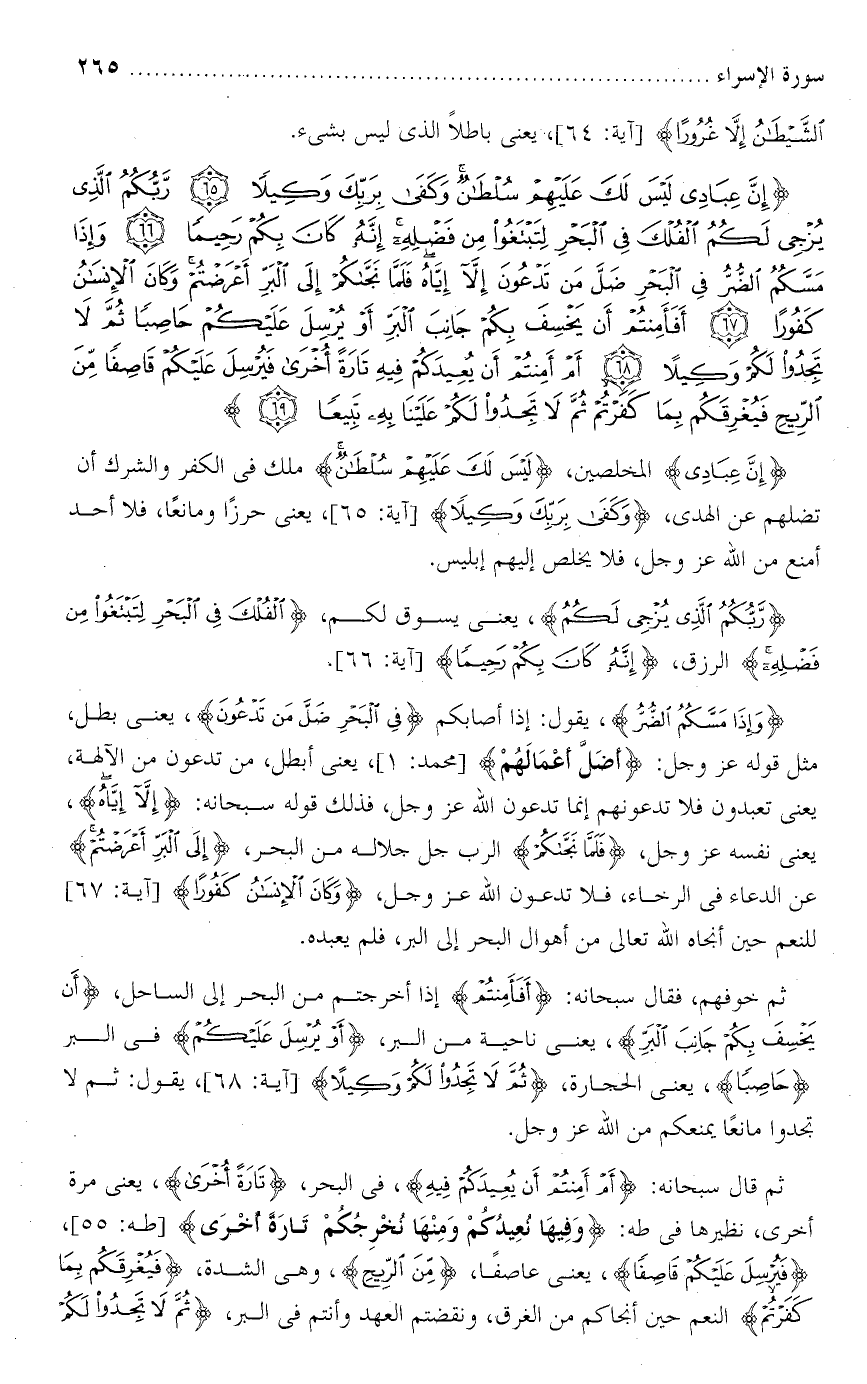 سورة الإسراء ........................................................................ ٢٦٥
ٱلشَّيْطَٰنُ إِلَّا غُرُورًا﴾ [آية: ٦٤]، يعنى باطلاً الذى ليس بشىء.
﴿إِنَّ عِبَادِى لَيْسَ لَكَ عَلَيْهِمْ سُلْطَٰنٌۚ وَكَفَىٰ بِرَبِّكَ وَكِيلًا ٦٥ رَّبُّكُمُ ٱلَّذِى
يُزْجِى لَكُمُ ٱلْفُلْكَ فِى ٱلْبَحْرِ لِتَبْتَغُوا۟ مِن فَضْلِهِۦٓۚ إِنَّهُۥ كَانَ بِكُمْ رَحِيمًا ٦٦ وَإِذَا
مَسَّكُمُ ٱلضُّرُّ فِى ٱلْبَحْرِ ضَلَّ مَن تَدْعُونَ إِلَّآ إِيَّاهُۖ فَلَمَّا نَجَّىٰكُمْ إِلَى ٱلْبَرِّ أَعْرَضْتُمْۚ وَكَانَ ٱلْإِنسَٰنُ
كَفُورًا ٦٧ أَفَأَمِنتُمْ أَن يَخْسِفَ بِكُمْ جَانِبَ ٱلْبَرِّ أَوْ يُرْسِلَ عَلَيْكُمْ حَاصِبًا ثُمَّ لَا
تَجِدُوا۟ لَكُمْ وَكِيلًا ٦٨ أَمْ أَمِنتُمْ أَن يُعِيدَكُمْ فِيهِ تَارَةً أُخْرَىٰ فَيُرْسِلَ عَلَيْكُمْ قَاصِفًا مِّنَ
ٱلرِّيحِ فَيُغْرِقَكُم بِمَا كَفَرْتُمْ ثُمَّ لَا تَجِدُوا۟ لَكُمْ عَلَيْنَا بِهِۦ تَبِيعًا ٦٩ ﴾
﴿إِنَّ عِبَادِى﴾ المخلصين، ﴿لَيْسَ لَكَ عَلَيْهِمْ سُلْطَٰنٌۚ﴾ ملك فى الكفر والشرك أن
تضلهم عن الهدى، ﴿وَكَفَىٰ بِرَبِّكَ وَكِيلًا﴾ [آية: ٦٥]، يعنى حرزًا ومانعًا، فلا أحد
أمنع من الله عز وجل، فلا يخلص إليهم إبليس.
﴿رَّبُّكُمُ ٱلَّذِى يُزْجِى لَكُمُ﴾، يعنى يسوق لكم، ﴿ٱلْفُلْكَ فِى ٱلْبَحْرِ لِتَبْتَغُوا۟ مِن
فَضْلِهِۦٓۚ﴾ الرزق، ﴿إِنَّهُۥ كَانَ بِكُمْ رَحِيمًا﴾ [آية: ٦٦].
﴿وَإِذَا مَسَّكُمُ ٱلضُّرُّ﴾، يقول: إذا أصابكم ﴿فِى ٱلْبَحْرِ ضَلَّ مَن تَدْعُونَ﴾، يعنى بطل،
مثل قوله عز وجل: ﴿أَضَلَّ أَعْمَالَهُمْ﴾ [محمد: ١]، يعنى أبطل، من تدعون من الآلهة،
يعنى تعبدون فلا تدعونهم إنما تدعون الله عز وجل، فذلك قوله سبحانه: ﴿إِلَّآ إِيَّاهُۖ﴾،
يعنى نفسه عز وجل، ﴿فَلَمَّا نَجَّىٰكُمْ﴾ الرب جل جلاله من البحر، ﴿إِلَى ٱلْبَرِّ أَعْرَضْتُمْۚ﴾
عن الدعاء فى الرخاء، فلا تدعون الله عز وجل، ﴿وَكَانَ ٱلْإِنسَٰنُ كَفُورًا﴾ [آية: ٦٧]
للنعم حين أنجاه الله تعالى من أهوال البحر إلى البر، فلم يعبده.
ثم خوفهم، فقال سبحانه: ﴿أَفَأَمِنتُمْ﴾ إذا أخرجتم من البحر إلى الساحل، ﴿أَن
يَخْسِفَ بِكُمْ جَانِبَ ٱلْبَرِّ﴾، يعنى ناحية من البر، ﴿أَوْ يُرْسِلَ عَلَيْكُمْ﴾ فى البر
﴿حَاصِبًا﴾، يعنى الحجارة، ﴿ثُمَّ لَا تَجِدُوا۟ لَكُمْ وَكِيلًا﴾ [آية: ٦٨]، يقول: ثم لا
تجدوا مانعًا يمنعكم من الله عز وجل.
ثم قال سبحانه: ﴿أَمْ أَمِنتُمْ أَن يُعِيدَكُمْ فِيهِ﴾، فى البحر، ﴿تَارَةً أُخْرَىٰ﴾، يعنى مرة
أخرى، نظيرها فى طه: ﴿وَفِيهَا نُعِيدُكُمْ وَمِنْهَا نُخْرِجُكُمْ تَارَةً أُخْرَى﴾ [طه: ٥٥]،
﴿فَيُرْسِلَ عَلَيْكُمْ قَاصِفًا﴾، يعنى عاصفًا، ﴿مِّنَ ٱلرِّيحِ﴾، وهى الشدة، ﴿فَيُغْرِقَكُم بِمَا
كَفَرْتُمْ﴾ النعم حين أنجاكم من الغرق، ونقضتم العهد وأنتم فى البر، ﴿ثُمَّ لَا تَجِدُوا۟ لَكُمْ